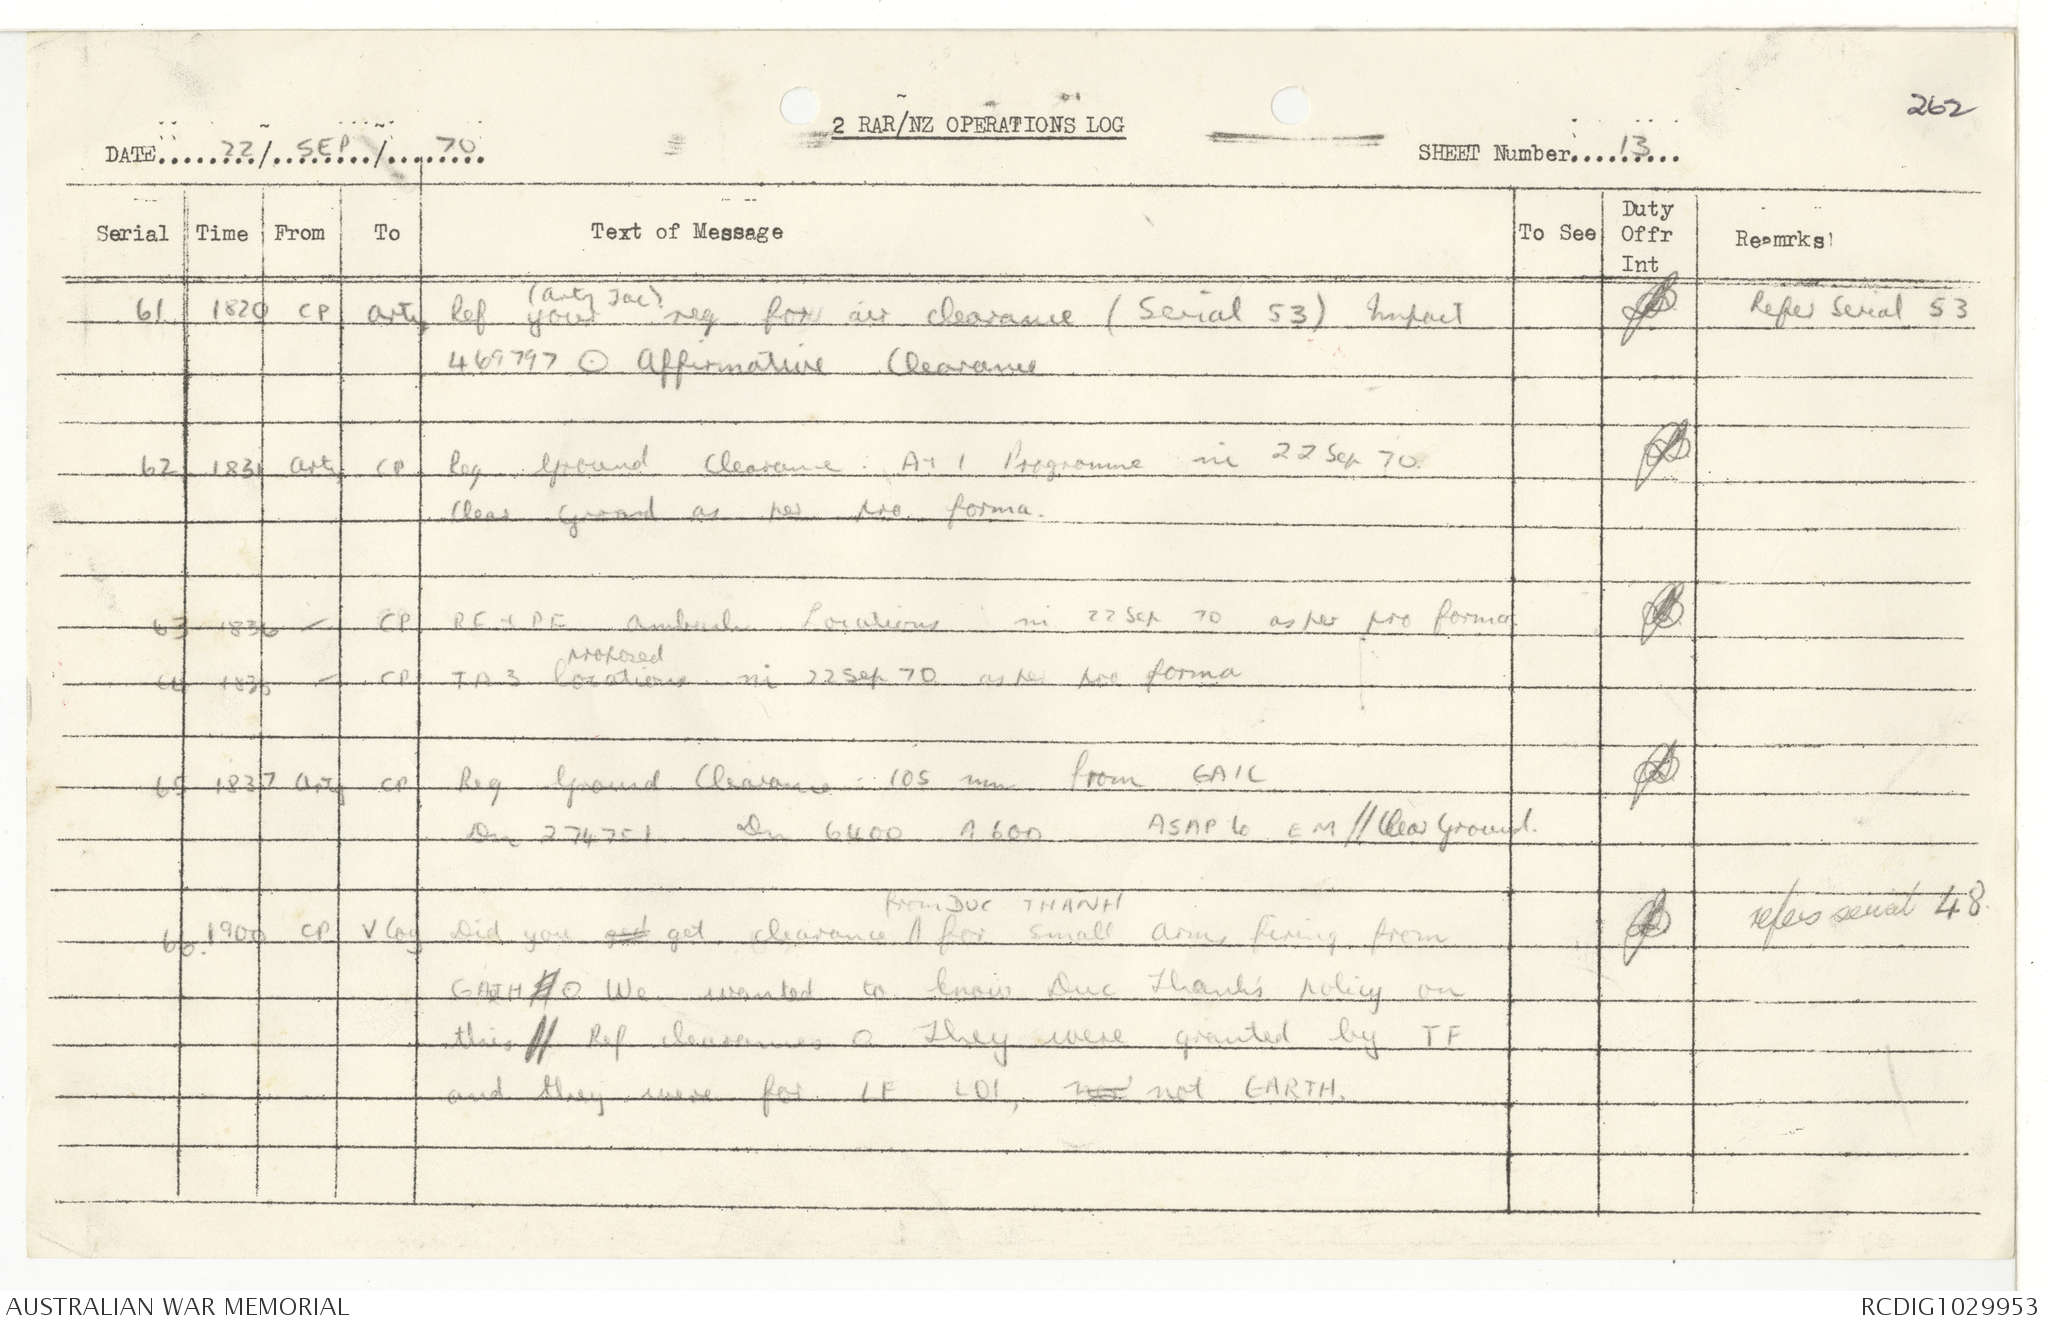 262
2 RAR/NZ OPERATIONS LOG
DATE......22/.SEP../...70
SHEET Number....13...
Serial Time From To Text of Message To See Duty Offr Int Remrks
(Arty Tac)
61 1820 CP Arty Ref your req for air clearance (Serial 53) Impact Refer Serial 53
469797 O Affirmative Clearance
62 1831 Arty CP Req Ground Clearance. H+I Programme ni 22 Sep 70.
Clear Ground as per pro forma.
63 1836 - CP RE + PE ambush Locations ni 22 Sep 70 as per pro forma
proposed
64 1836 - CP locations ni 22 Sep 70 as per pro forma
65 1837 Arty CP Req Ground Clearance. 105 mm from GAIL
Dn 274751 Dn 6400 A 600 ASAP to EM // Clear Ground.
from DUC THANH
66. 1900 CP V Coy Did you get clearance for small arms firing from refers serial 48.
O We wanted to know Duc Thanh's policy on
this // Ref clearances O They were granted by TF
and they were for not GARTH.
AUSTRALIAN WAR MEMORIAL
RCDIG1029953